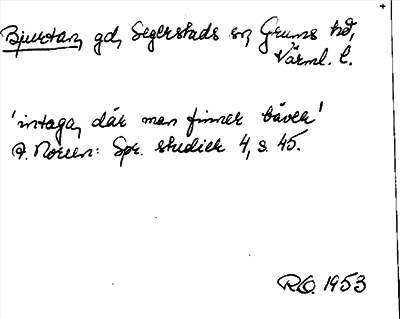 Bjurtan, gd, Segerstads sn, Grums hd,
Värml. l.
'intaga, där man finner bäver'
A. Noreen: Spr. studier 4, s. 45.
R.O. 1953